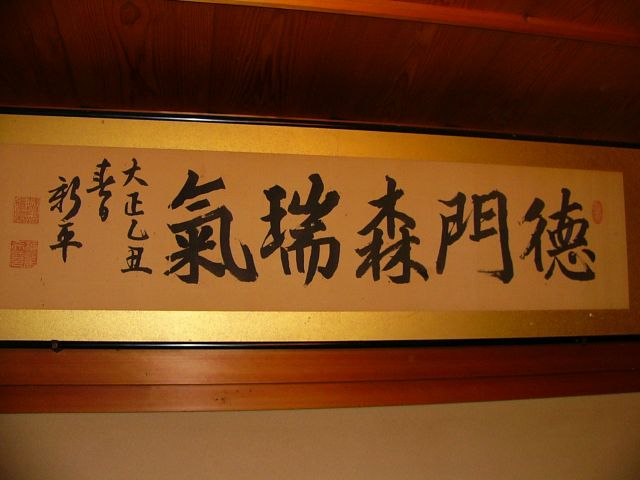 徳門森瑞氣
大正乙丑
春日
新平